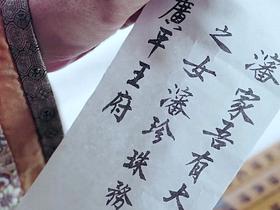 潘家吾有大
之女潘珍珠務
廣平王府